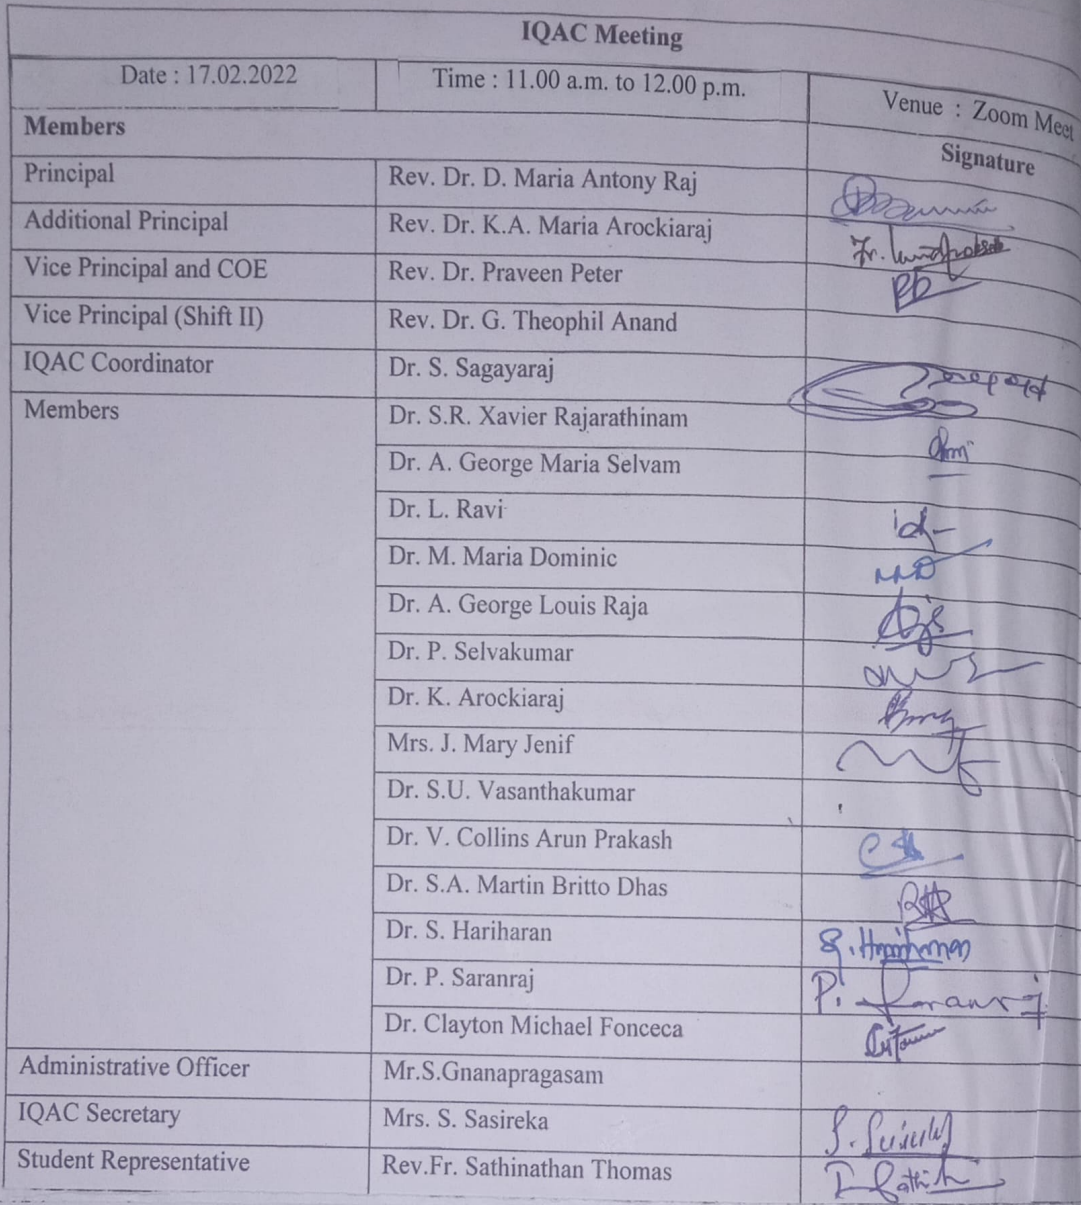 IQAC Meeting
Date : 17.02.2022 Time : 11.00 a.m. to 12.00 p.m. Venue : Zoom Meet
Members Signature
Principal Rev. Dr. D. Maria Antony Raj
Additional Principal Rev. Dr. K.A. Maria Arockiaraj
Vice Principal and COE Rev. Dr. Praveen Peter
Vice Principal (Shift II) Rev. Dr. G. Theophil Anand
IQAC Coordinator Dr. S. Sagayaraj
Members Dr. S.R. Xavier Rajarathinam
Dr. A. George Maria Selvam
Dr. L. Ravi
Dr. M. Maria Dominic
Dr. A. George Louis Raja
Dr. P. Selvakumar
Dr. K. Arockiaraj
Mrs. J. Mary Jenif
Dr. S.U. Vasanthakumar
Dr. V. Collins Arun Prakash
Dr. S.A. Martin Britto Dhas
Dr. S. Hariharan S. Hariharan
Dr. P. Saranraj P. Saranraj
Dr. Clayton Michael Fonceca
Administrative Officer Mr.S.Gnanapragasam
IQAC Secretary Mrs. S. Sasireka
Student Representative Rev.Fr. Sathinathan Thomas